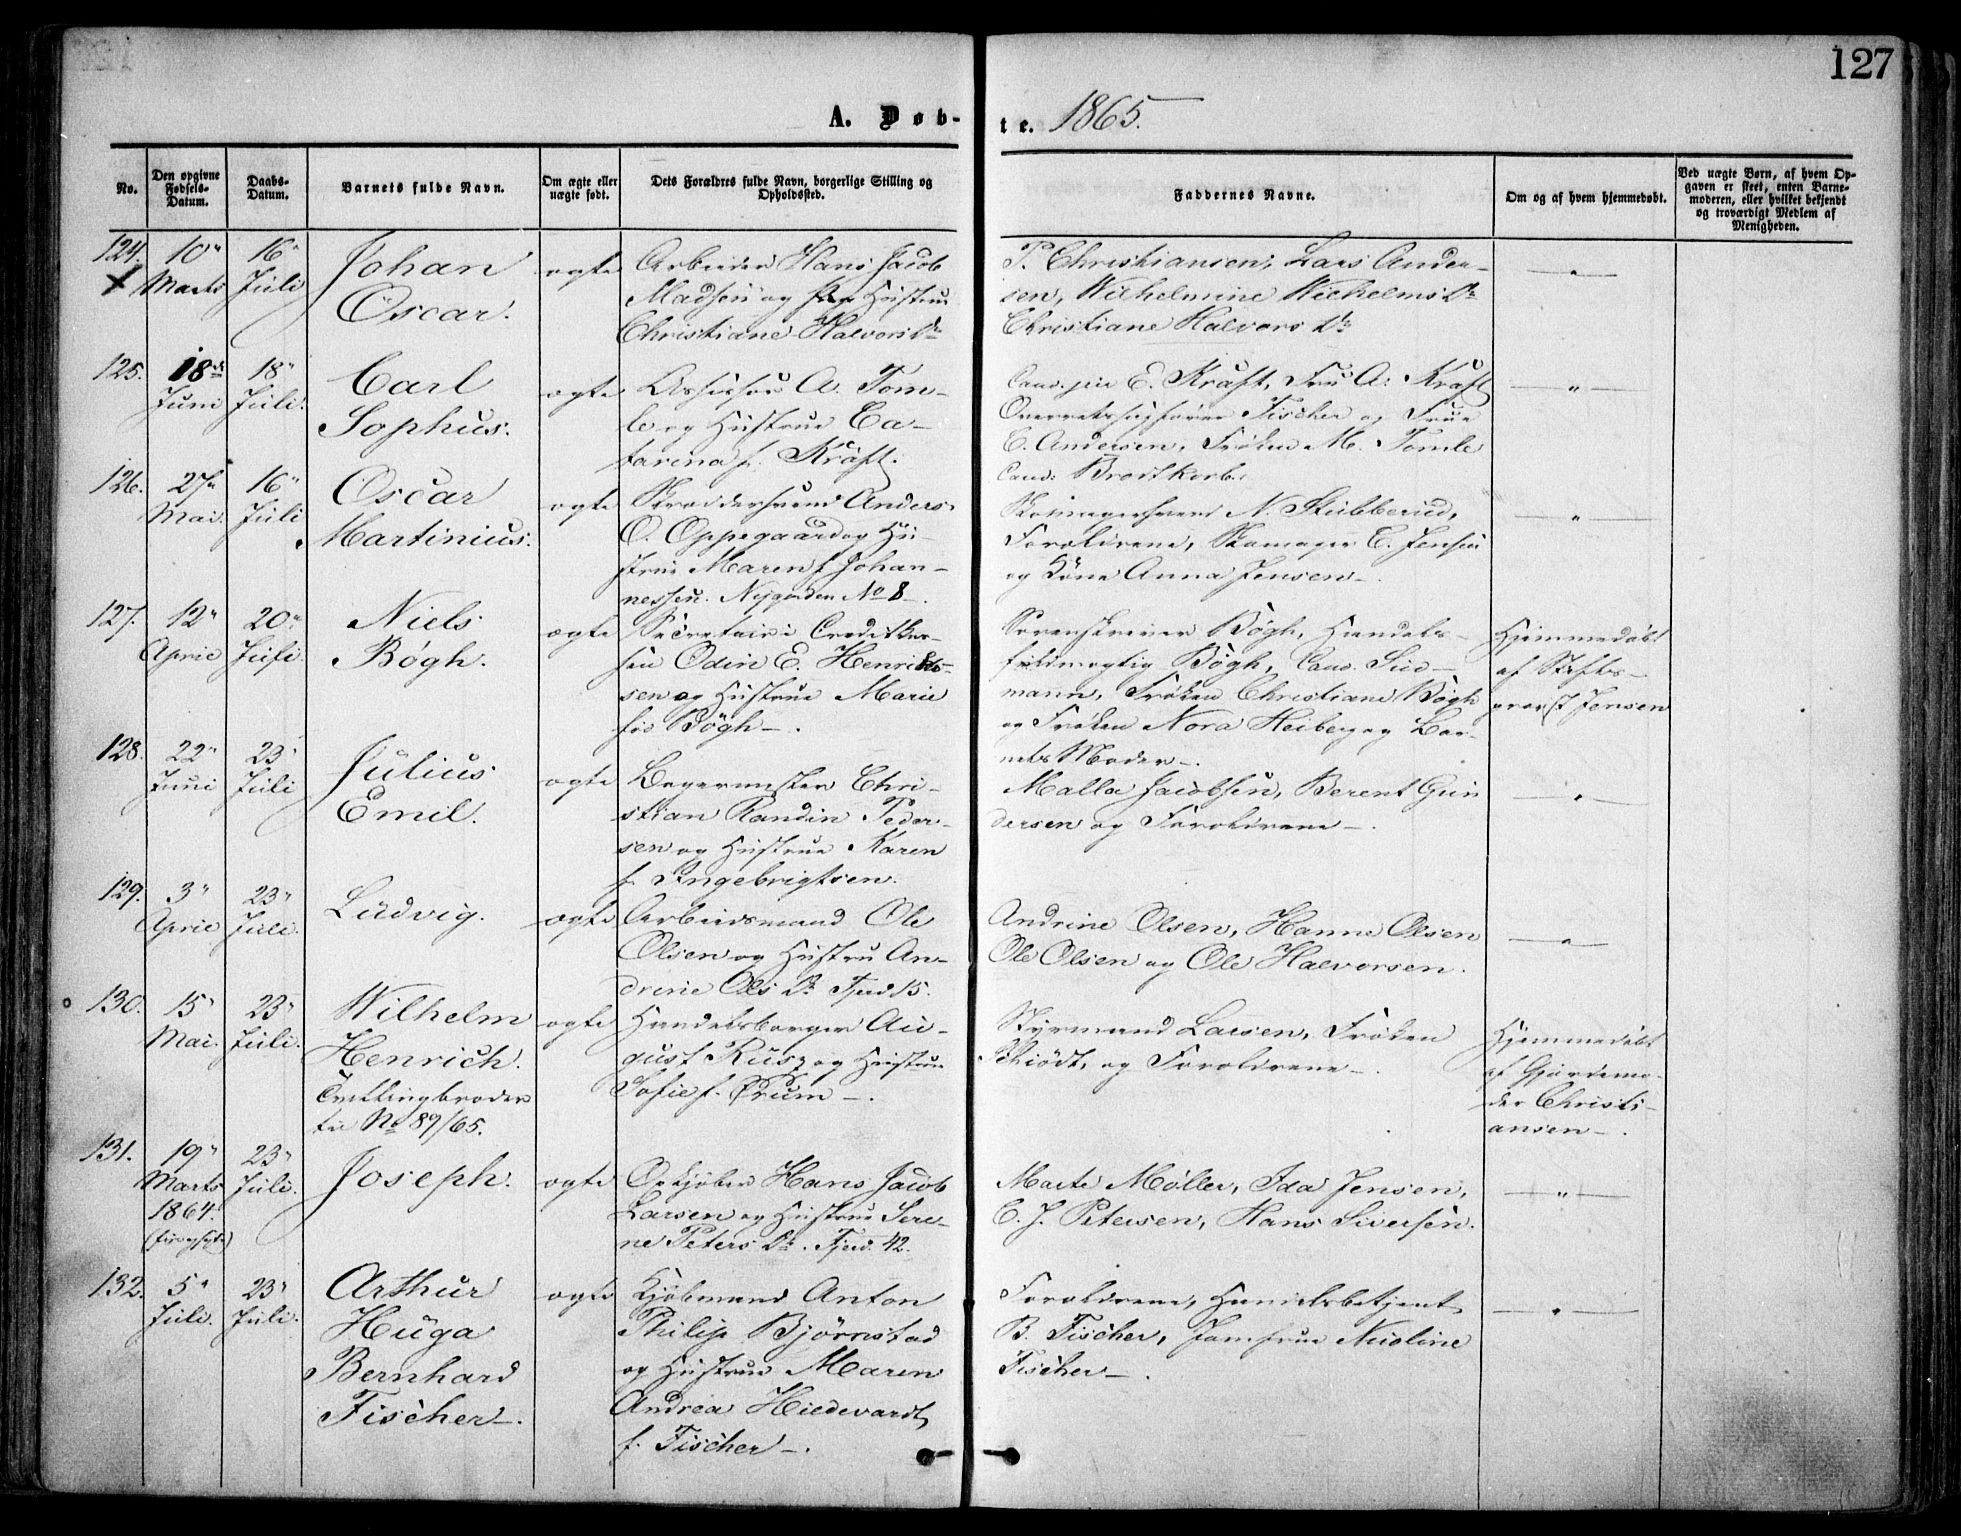 127
A. Døb-
te. 1865.
No.
Den opgivne Fødsels-Datum.
Daabs-Datum.
Barnets fulde Navn.
Om ægte eller uægte født.
Dets Forældres fulde Navn, borgerlige Stilling og Opholdssted.
Faddernes Navne.
Om og af hvem hjemmedøbt.
Ved uægte Børn, af hvem Op-
gaven er skeet, enten Barne-
moderen, eller hvilket bekjendt
og troværdigt Medlem af
Menigheden.
124. 10" Marts
16" Juli
Johan
Oscar.
ægte
Arbeider Hans Jacob
Madsen og Hustrue
Christiane Halvorsdr
P. Christiansen, Lars Ander-
sen, Wilhelmine Wilhelmsdr
Christiane Halvorsdr
"
125. 18de Juni
18" Juli.
Carl
Sophus.
ægte
Assessor A. Tom-
le og Hustrue Ca-
tarina f. Kraft.
Cand. jur. E. Kraft, Fru A. Kraft
Overretssagfører Fischer og Frue
E. Andersen, Frøken M. Tomle
Cand. Brodtkorb.
"
126. 27" Mai.
16" Juli
Oscar
Martinius.
ægte
Skræddersvend Anders
O. Oppegaard og Hu-
strue Maren f. Johan-
nessen. Nygaden No 8.
Skomagersvend N. Stubberud,
Forældrene, Skomager E. Jensen
og Kone Anna Jensen.
"
127. 12" April
20" Juli.
Niels
Bøgh.
ægte
Secretair i Creditkas-
sen Odin E. Henrik-
sen og Hustrue Marie
fød Bøgh.
Sorenskriver Bøgh, Handels-
fuldmægtig Bøgh, Cand. Sud-
mann, Frøken Christiane Bøgh
og Frøken Nora Heiberg og Bar-
nets Moder.
Hjemmedøbt
af Stifts-
provst Jensen
128. 22" Juni
23" Juli
Julius
Emil.
ægte
Bagermester Chri-
stian Randin Peder-
sen og Hustrue Karen
f. Ingebrigtsen.
Malla Jacobsen, Berent Gun
dersen og Forældrene.
"
129. 3" April
23" Juli.
Ludvig.
ægte
Arbeidsmand Ole
Olsen og Hustru An-
drine Olsdr. Fjerd. 15.
Andrine Olsen, Hanne Olsen
Ole Olsen og Ole Halvorsen.
"
130. 15" Mai.
23" Juli.
Wilhelm
Henrich.
Tvillingbroder
til No 89/65.
ægte
Handelsborger Au-
gust Rusz og Hustrue
Sofie f. Prum.
Styrmand Larsen, Frøken
Schiødt, og Forældrene.
Hjemmedøbt
af Gjordemo-
der Christi-
ansen.
131. 19" Marts
1864.
23" Juli.
Joseph.
ægte
Opkjøber Hans Jacob
Larsen og Hustrue Sere-
ne Petersdr. Fjerd. 42.
Marte Møller, Ida Jensen,
C. J. Petersen, Hans Siversen.
"
132. 5" Juli.
23" Juli.
Arthur
Huga
Bernhard
Fischer.
ægte
Kjøbmand Anton
Philip Bjørnstad
og Hustrue Maren
Andrea Hildevardt
f. Fischer.
Forældrene, Handelsbetjent
B. Fischer, Jomfrue Nicoline
Fischer.
"